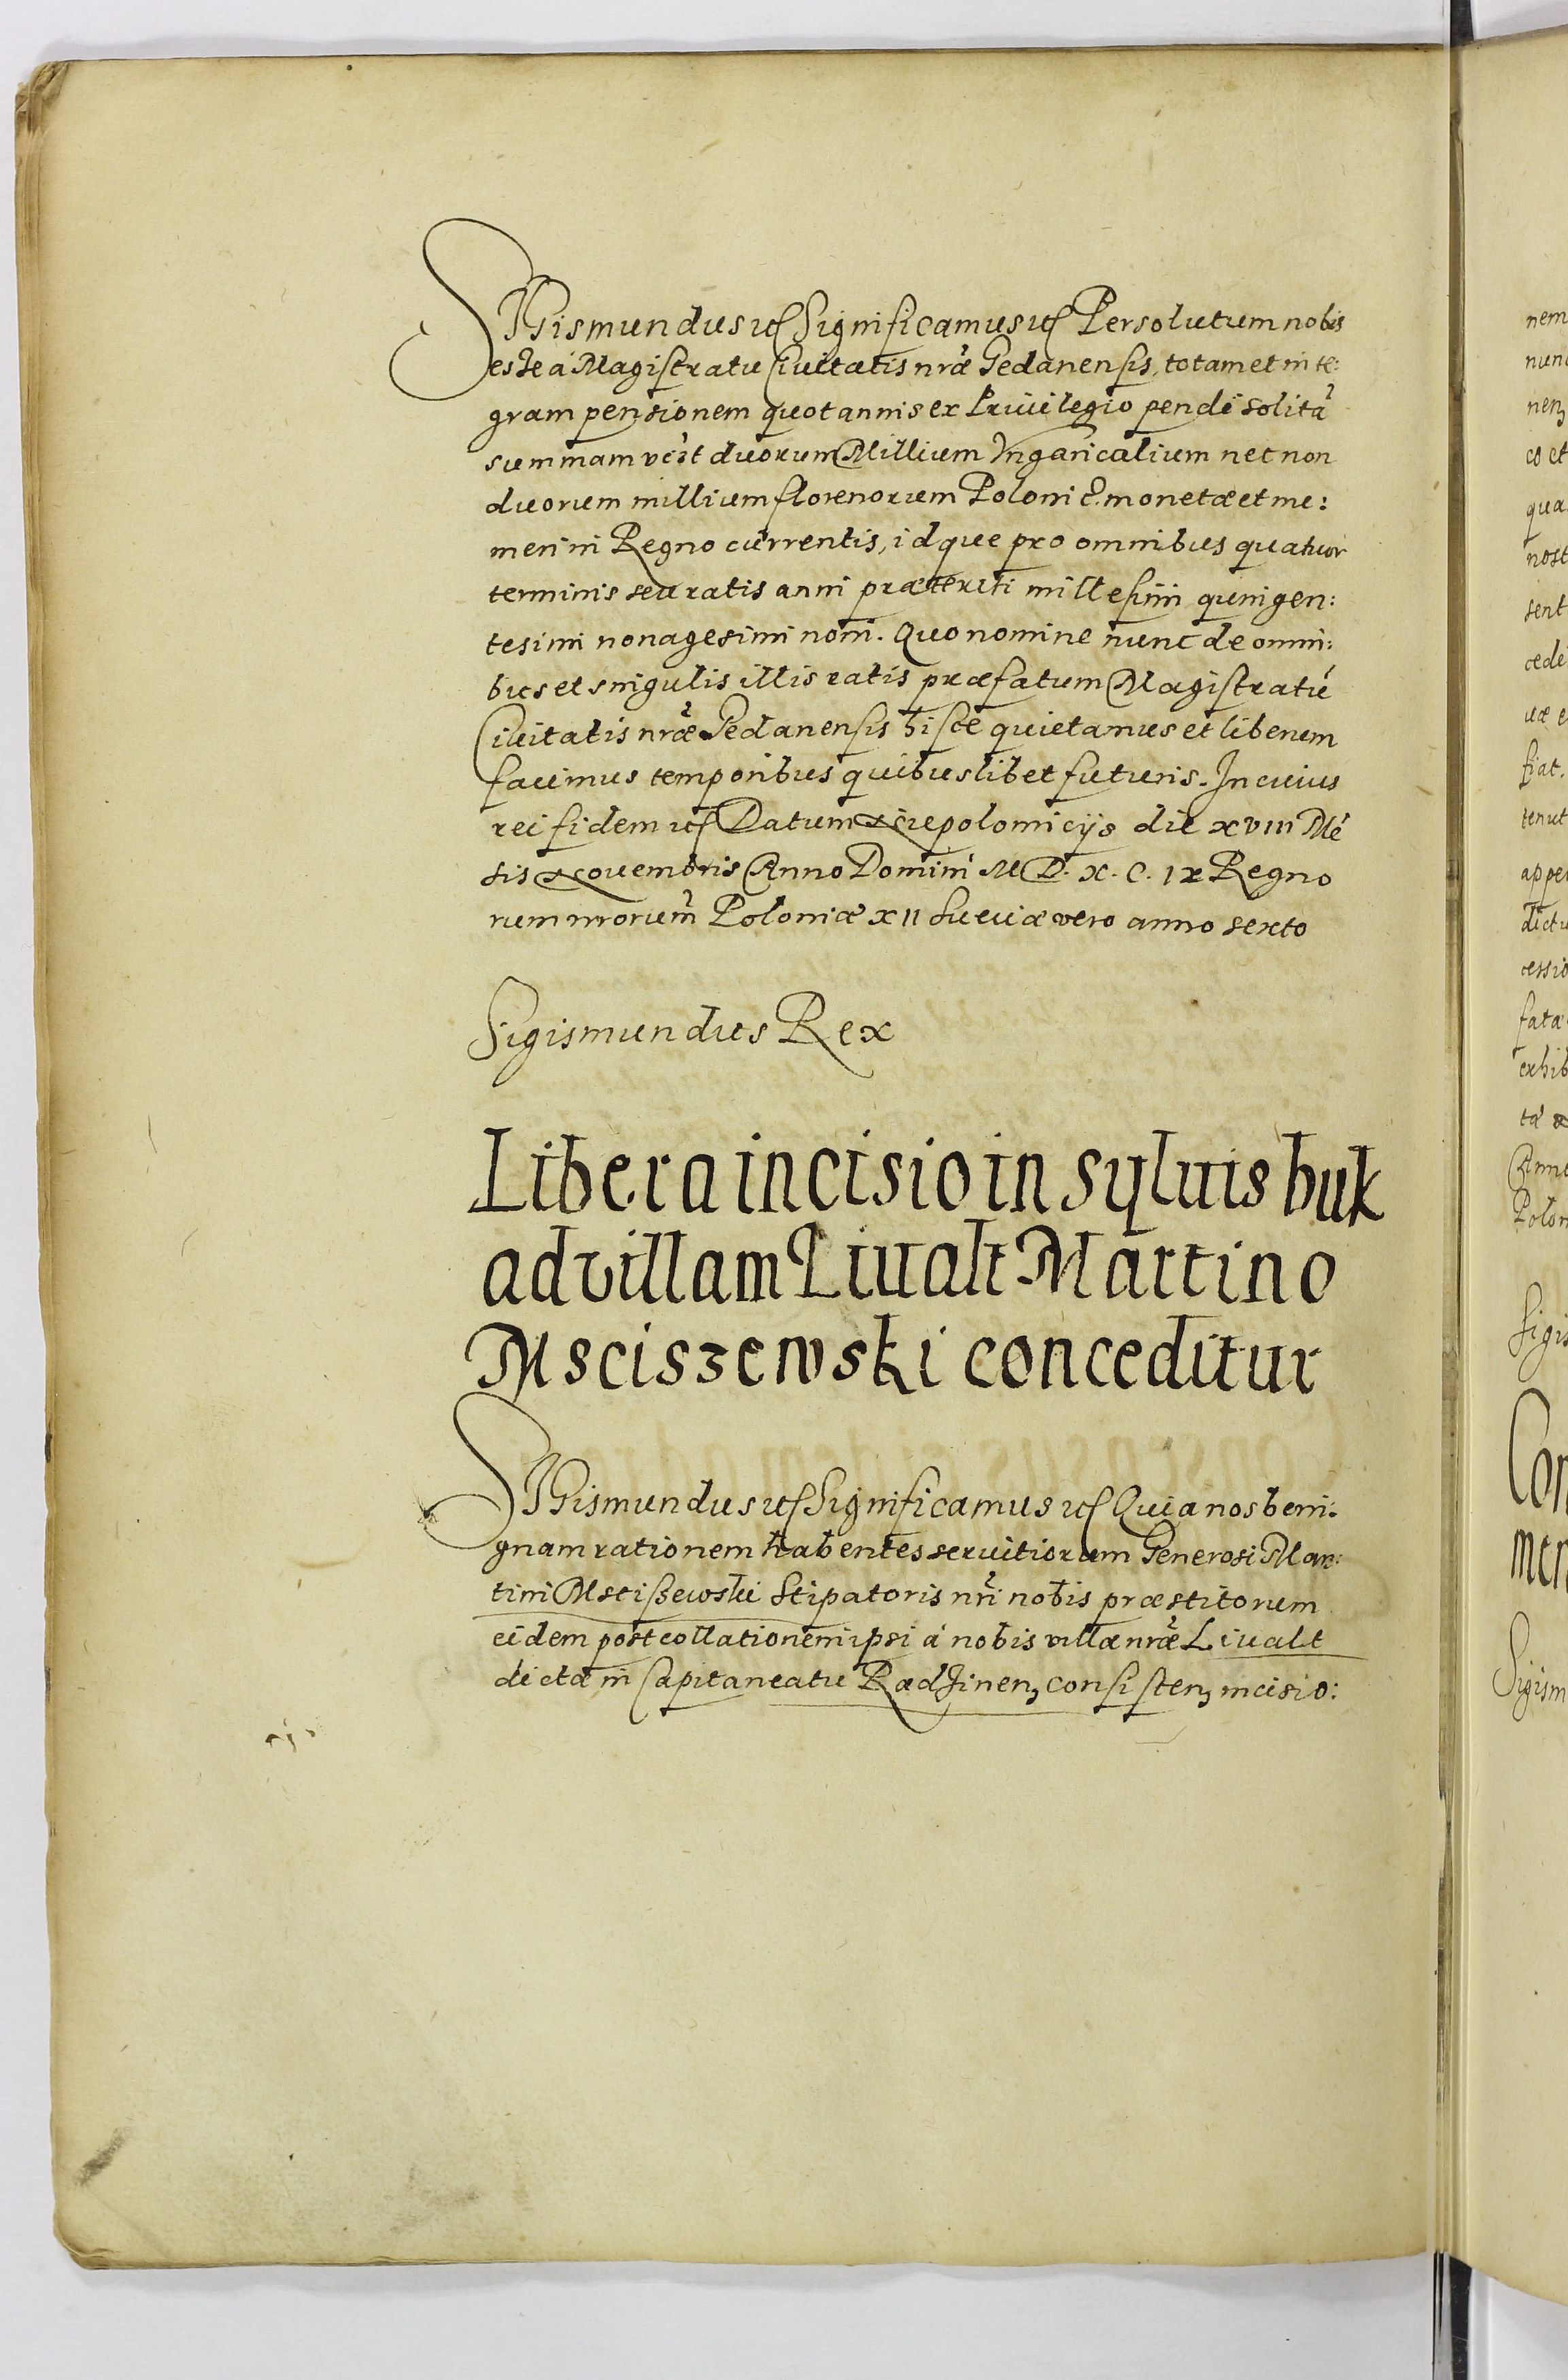 SIGismundus etc Significamus etc Persolutum nobis
esse a Magistratu Civitatis nrae Gedanensis, totam et inte:
gram pensionem quotannis ex Privilegio pendi solitā
summam vczt duorum Millium Vngaricalium nec non
duorum millium florenorum Polonic. monetae et nu:
meri in Regno currentis, idque pro omnibus quatuor
terminis seu ratis anni praeteriti millesimi quingen:
tesimi nonagesimi noni. Quo nomine nunc de omni:
bus et singulis illis ratis praefatum Magistratū
Civitatis nrae Gedanensis hisce quietamus et liberum
facimus temporibus quibuslibet futuris. In cuius
rei fidem etc Datum Niepolomicijs die XVIII Mē
sis Novembris Anno Domini M D. X. C. IX Regno
rum nrorum Poloniae XII Sueciae vero anno sexto
Sigismundus Rex
Libera incisio in syluis buk
ad villam Liualt Martino
Msciszewski conceditur
SIGismundus etc Significamus etc Quia nos beni:
gnam rationem habentes servitiorum Generosi Mar:
tini Mscißewski Stipatoris nri nobis praestitorum
eidem post collationem ipsi a nobis villae nrae Liualt
dictae in Capitaneatu Radzinen, consisten, incisio:
nem
nunc
nen,
co et
qua
nost
sent
cede
uae e
fiat.
tenut
appe
dictu
cessio
fata
exhib
Anno
Polon
Sigis
Con
men
Sigism